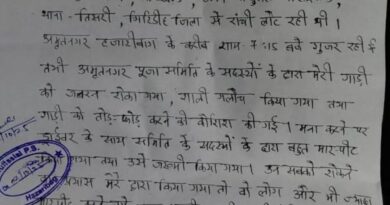 थाना - तिसरी, गिरिडीह जिला में रांची लौट रही थी।
अमृतनगर हजारीबाग के करीब शाम 7:15 बजे गुजर रही थी
तभी अमृतनगर पूजा समिति के सदस्यों के द्वारा मेरी गाड़ी
को जबरन रोका गया, गाली गलौच किया गया तथा
गाड़ी को तोड़-फोड़ करने की कोशिश की गई। मना करने पर
ड्राईवर के साथ समिति के सदस्यों के द्वारा बहुत मारपीट
किया गया तथा उसे जख्मी किया गया। उन सबको रोकने
प्रयास मेरे द्वारा किया गया तो वो लोग और भी ज्यादा
P.S.
Hazaribag